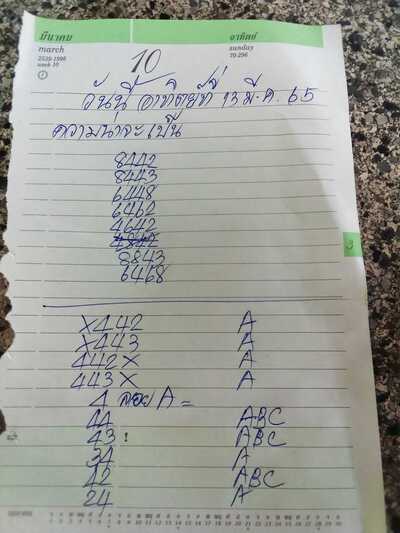 มีนาคม
march
2539-1996
week 10
อาทิตย์
sunday
70-296
10
วันนี้ อาทิตย์ที่ 13 มี.ค. 65
ความน่าจะเป็น
8442
8443
6448
6462
4642
4842
8843
6468
X442 A
X443 A
442X A
443X A
4 ลอย A =
44 ABC
43 ! ABC
34 A
42 ABC
24 A
3